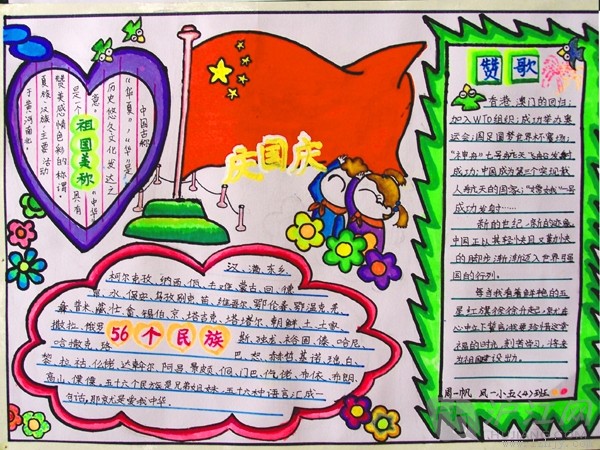 中国古称
"华夏","华"是
历史悠久文化发达之
意。
"中华"
是一个
具有
赞美感情色彩的称谓。
夏族、汉族、主要活动
于黄河南北。
祖国美称
庆国庆
赞歌
香港、澳门的回归;
加入WTO组织;成功举办奥
运会;国足圆梦世界杯赛场;
"神舟"七号航天飞船发射
成功;中国成为第三个实现载
人航天的国家;"嫦娥"一号
成功发射……
新的世纪,新的征途。
中国正以其轻快且又勤快
的脚步渐渐迈入世界强
国的行列。
每当我看着鲜艳的五
星红旗徐徐升起,就在
心中立下誓言:我要珍惜这幸
福的时光,刻苦学习,将来
为祖国建设出力。
周一帆 风一小五(4)班
汉、满、东乡、
柯尔克孜、纳西、佤、土、蒙古、回、傣
水、保安、乌孜别克、苗、维吾尔、鄂伦春、鄂温克、羌、
普米、藏、壮、畲、锡伯、京、塔吉克、塔塔尔、朝鲜、土、土家、
撒拉、俄罗
56个民族
斯、独龙、裕固、傣、哈尼、
哈萨克、珞
巴、怒、赫哲、基诺、瑶、白、
黎、拉祜、仡佬、达斡尔、阿昌、景颇、侗、门巴、仡佬、布依、布朗、
高山、傈僳,五十六个民族是兄弟姐妹,五十六种语言汇成一
句话,那就是爱我中华。